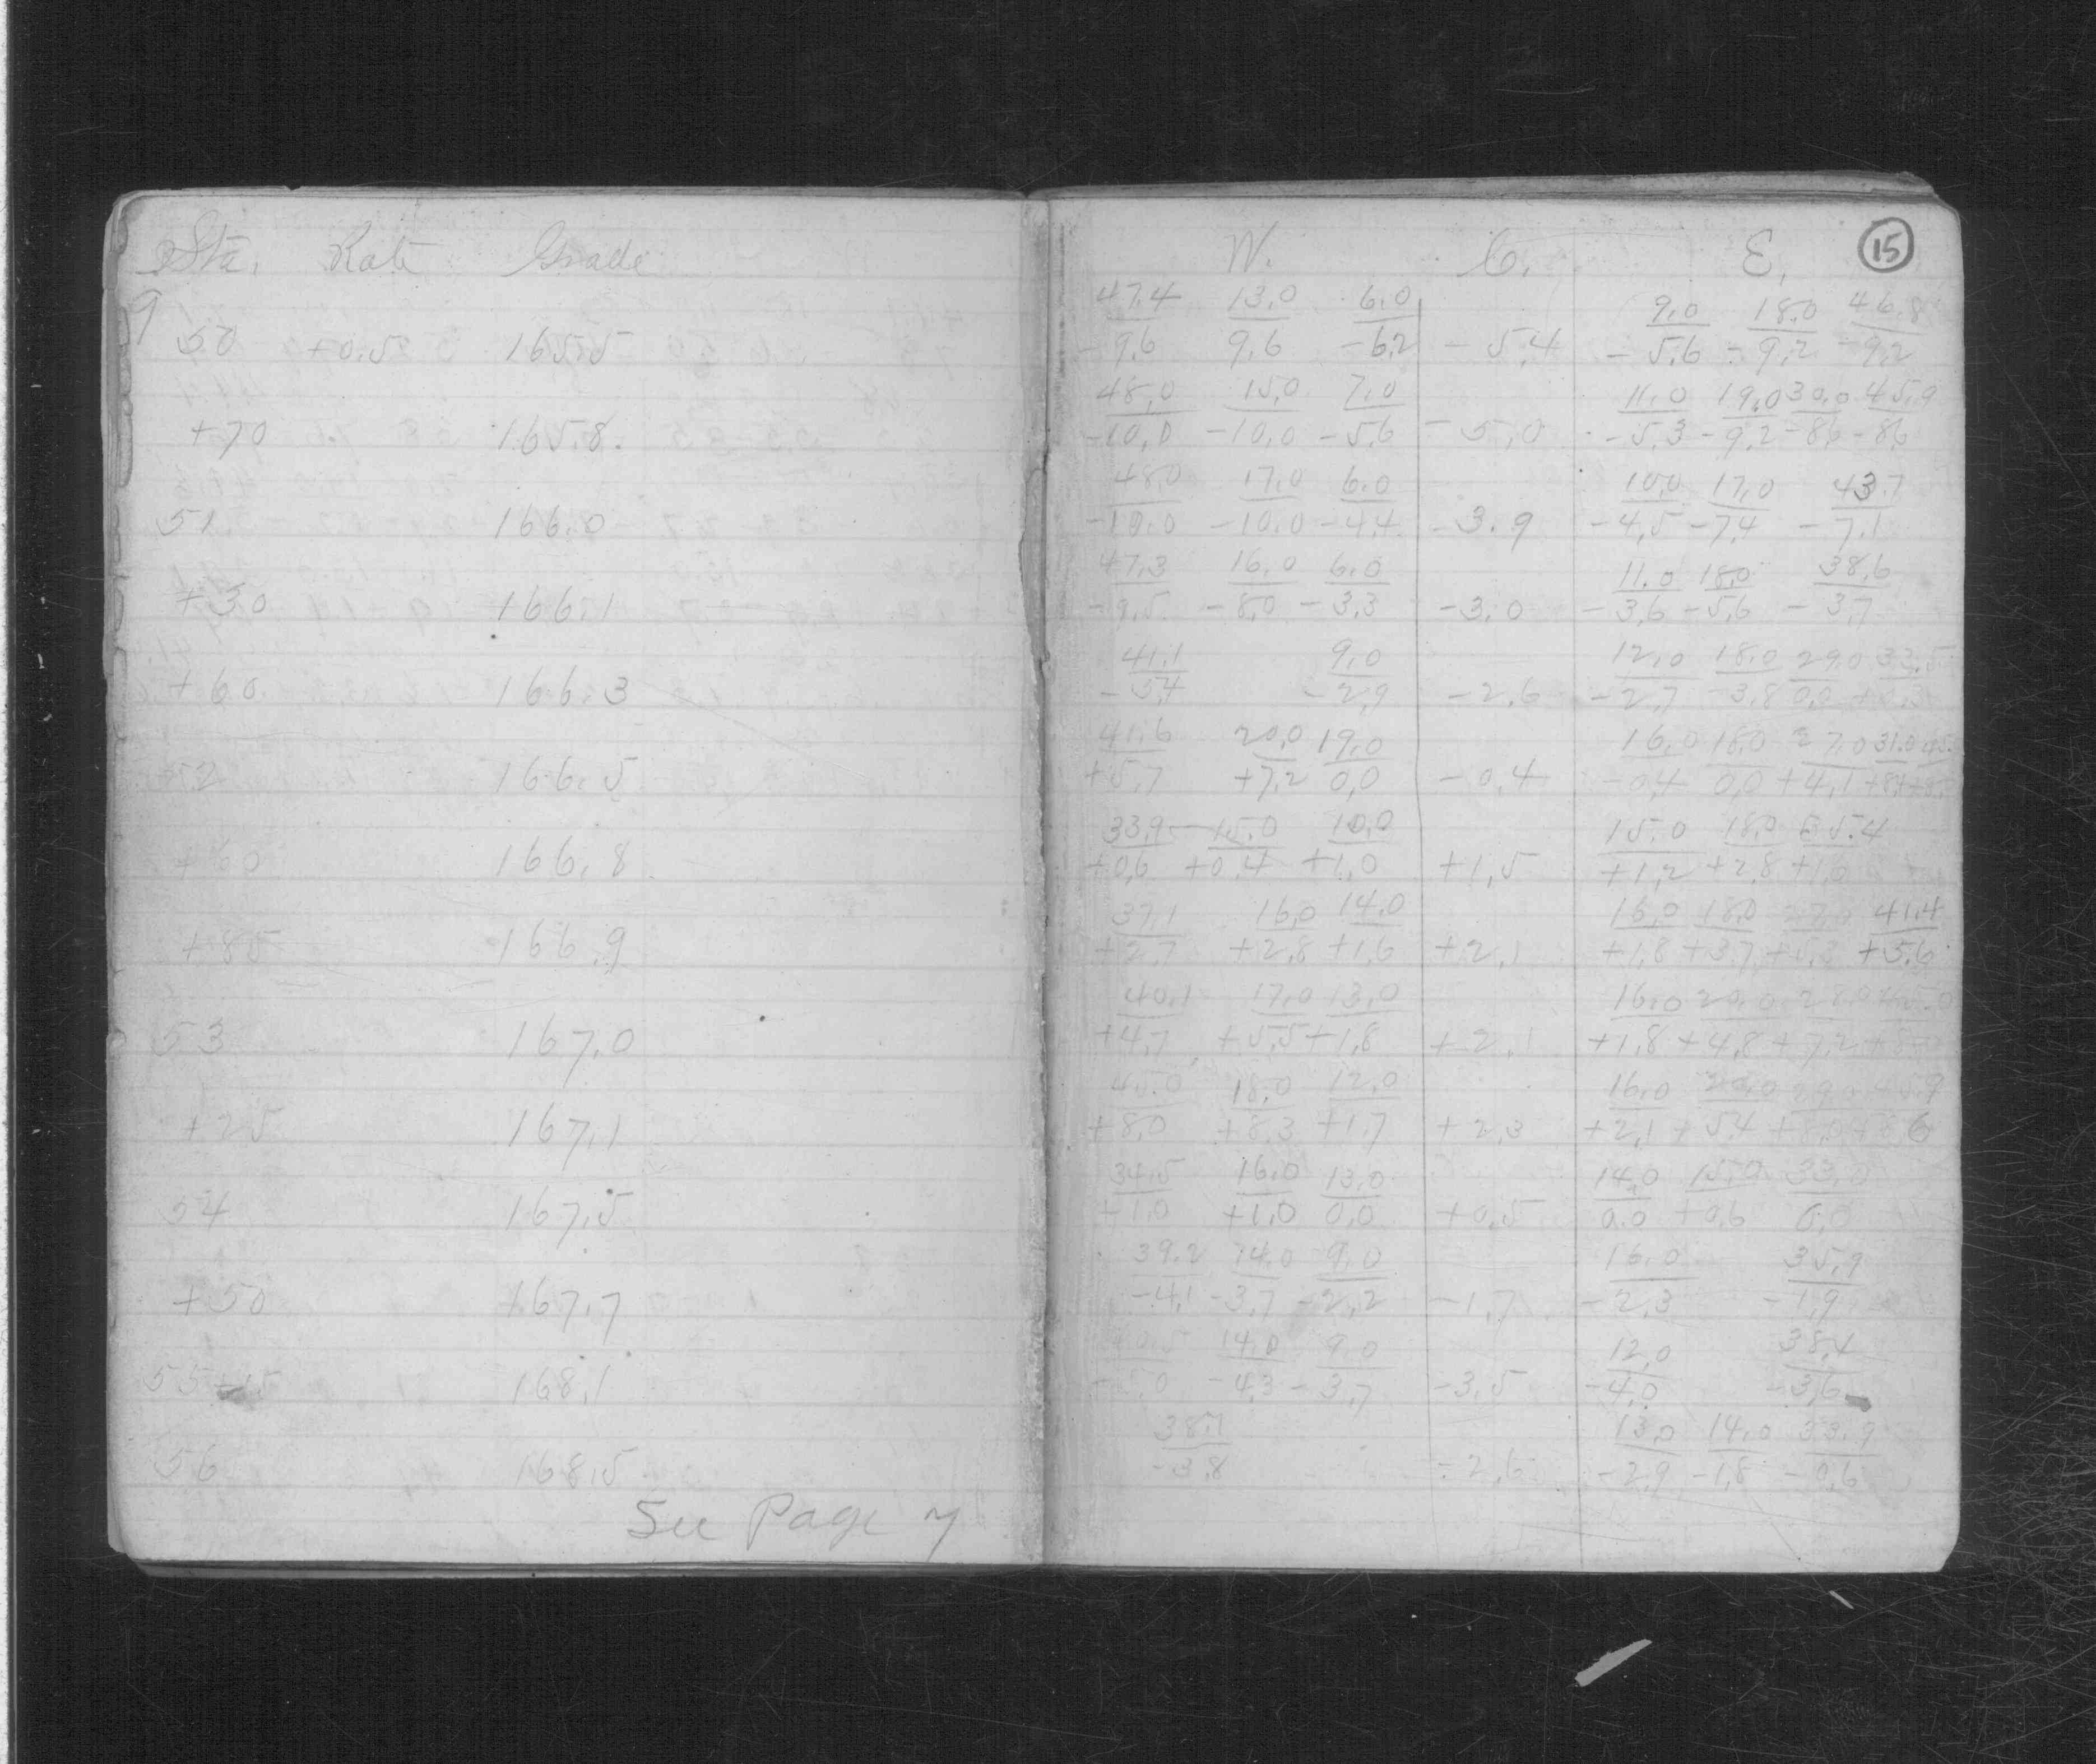 Sta. Rate Grade
9
50 +0.5 165.5
+70 165.8
51 166.0
+30 166.1
+60 166.3
52 166.5
+60 166.8
+85 166.9
53 167.0
+25 167.1
54 167.5
+50 167.7
55+15 168.1
56 168.5
See Page 7
W. C. E. 15
47.4 13.0 6.0 9.0 18.0 46.8
-9.6 9.6 -6.2 -5.4 -5.6 -9.2 -9.2
48.0 15.0 7.0 11.0 19.0 30.0 45.9
-10.0 -10.0 -5.6 -5.0 -5.3 -9.2 -8.6 -8.6
48.0 17.0 6.0 10.0 17.0 43.7
-10.0 -10.0 -4.4 -3.9 -4.5 -7.4 -7.1
47.3 16.0 6.0 11.0 18.0 38.6
-9.5 -8.0 -3.3 -3.0 -3.6 -5.6 -3.7
41.1 9.0 12.0 18.0 29.0 33.5
-5.4 -2.9 -2.6 -2.7 -3.8 0.0
41.6 20.0 19.0 16.0 18.0 27.0 31.0
+5.7 +7.2 0.0 -0.4 -0.4 0.0 +4.1
33.9 15.0 10.0 15.0 18.0 35.4
+0.6 +0.4 +1.0 +1.5 +1.2 +2.8 +1.6
37.1 16.0 14.0 16.0 18.0 27.0 41.4
+2.7 +2.8 +1.6 +2.1 +1.8 +3.7 +5.3 +5.6
40.1 17.0 13.0 16.0 20.0 28.0 45.0
+4.7 +5.5 +1.8 +2.1 +1.8 +4.8 +7.2
45.0 18.0 12.0 16.0 20.0 29.0 45.9
+8.0 +8.3 +1.7 +2.3 +2.1 +5.4 +8.0 +8.6
34.5 16.0 13.0 14.0 15.0 33.0
+1.0 +1.0 0.0 +0.5 0.0 +0.6 0.0
39.2 14.0 9.0 16.0 35.9
-4.1 -3.7 -2.2 -1.7 -2.3 -1.9
14.0 9.0 12.0 38.4
-4.3 -3.7 -3.5 -4.0 -3.6
38.7 13.0 14.0 33.9
-3.8 -2.6 -2.9 -1.8 -0.6